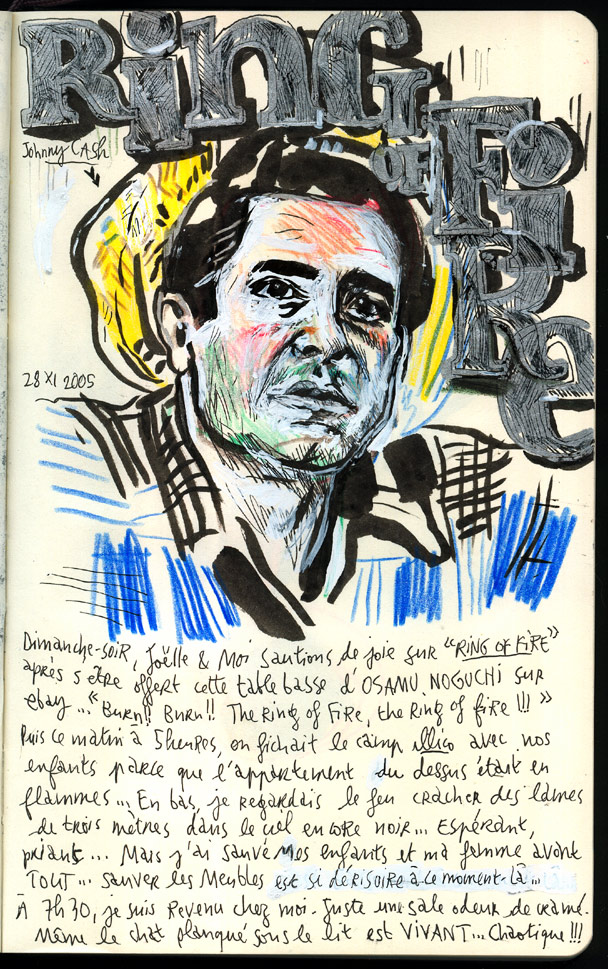 RinG
OF
FiRe
Johnny CAsh
28 XI 2005
Dimanche-soir, Joëlle & Moi sautions de joie sur "RING OF FIRE"
après s'être offert cette table basse d'OSAMU NOGUCHI sur
ebay... "Burn!! Burn!! The Ring of Fire, the Ring of fire!!!"
Puis ce matin à 5 heures, on fichait le camp illico avec nos
enfants parce que l'appartement du dessus était en
flammes... En bas, je regardais le feu cracher des lames
de trois mètres dans le ciel encore noir... Espérant,
priant... Mais j'ai sauvé nos enfants et ma femme avant
TOUT... sauver les Meubles est si dérisoire à ce moment-là...
À 7h30, je suis Revenu chez moi. Juste une sale odeur de cramé.
Même le chat planqué sous le lit est ViVANT... Chaotique!!!